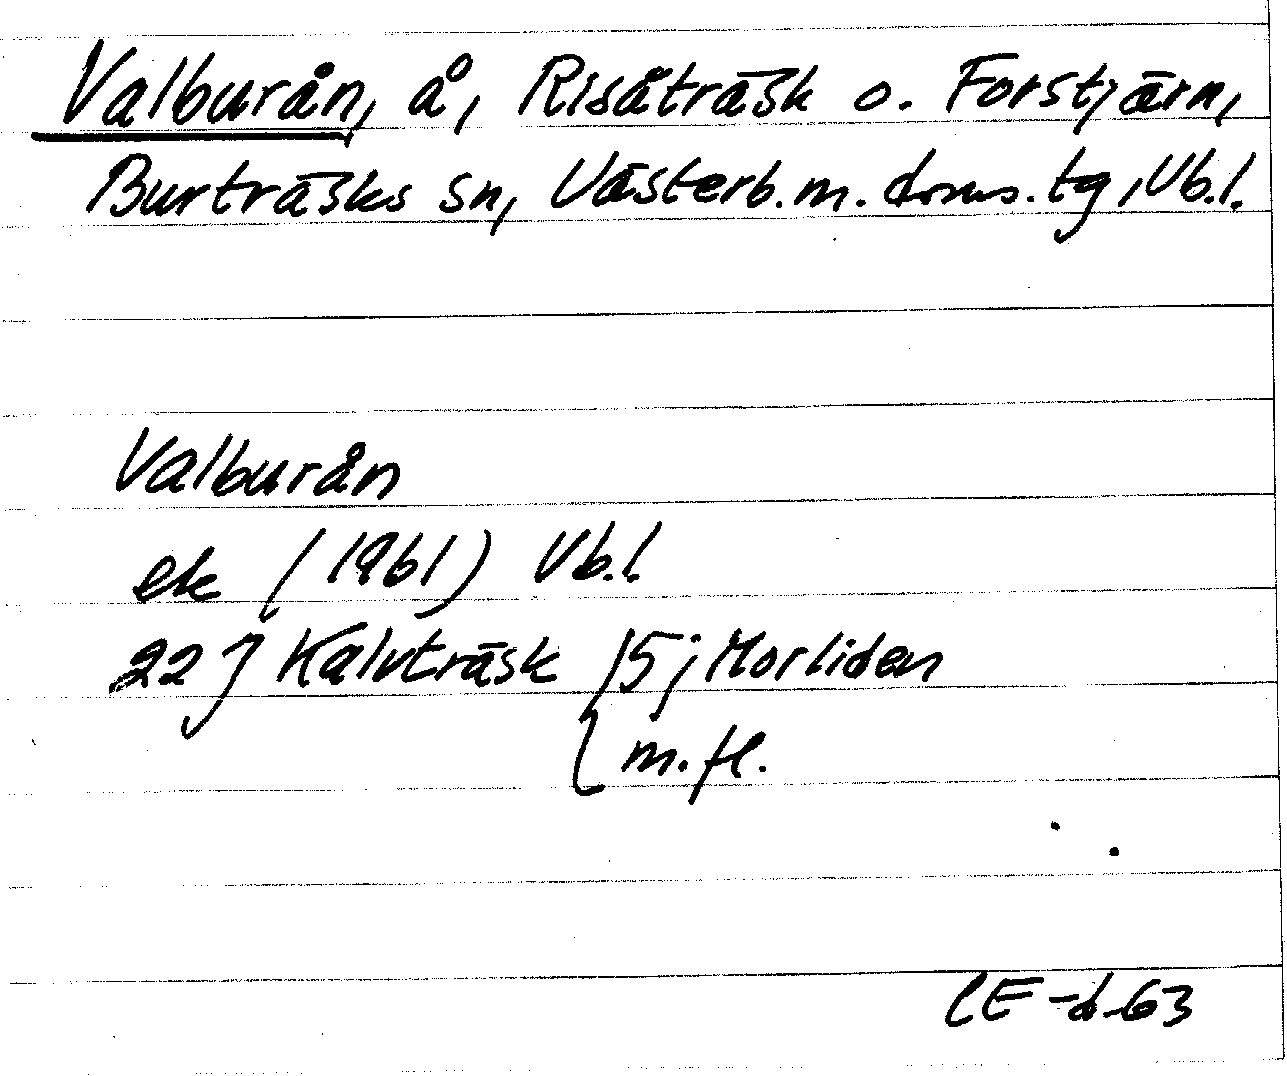 Valburån, å, Risåträsk o. Forstjärn,
Burträsks sn, Västerb. m. doms. tg, Vb.l.
Valburån
ek (1961) Vb.l.
22 J Kalvträsk / 5 j Morliden
m.fl.
CE-d-63